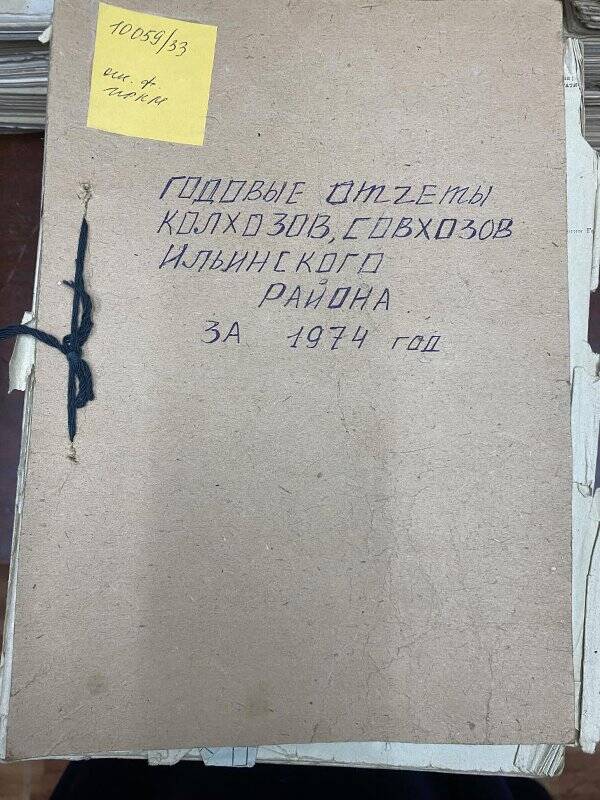 10059/33
осн. ф.
ИРКМ
ГОДОВЫЕ ОТЧЕТЫ
КОЛХОЗОВ, СОВХОЗОВ
ИЛЬИНСКОГО
РАЙОНА
ЗА 1974 год